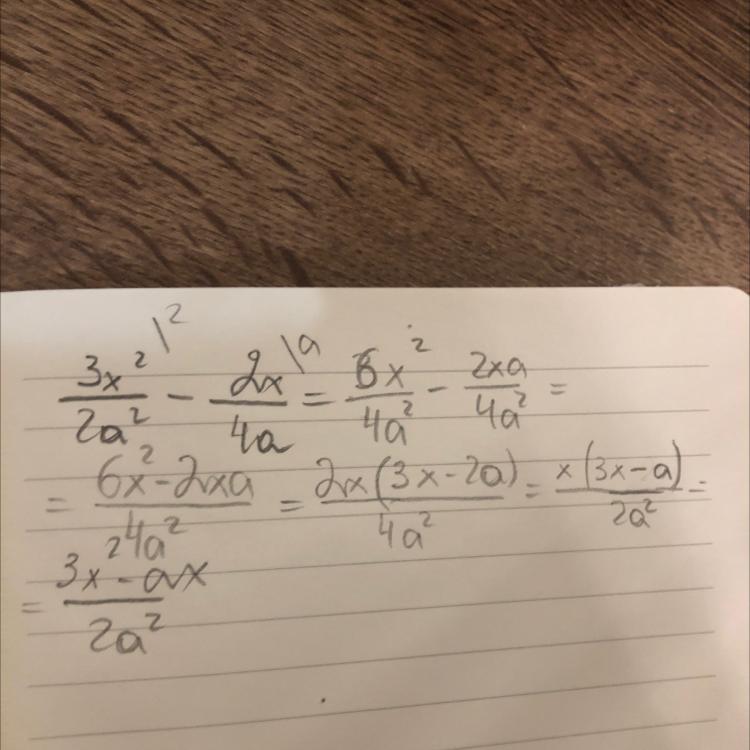 3x²/2a² \² - 2x/4a \a = 6x²/4a² - 2xa/4a² =
= (6x²-2xa)/4a² = 2x(3x-2a)/4a² = x(3x-a)/2a² =
= (3x²-ax)/2a²